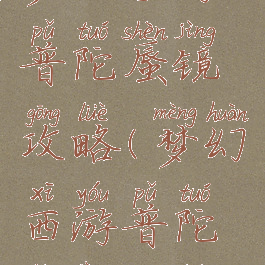 pǔ tuó shèn jìng
普陀蜃镜
gōng lüè mèng huàn
攻略(梦幻
xī yóu pǔ tuó
西游普陀